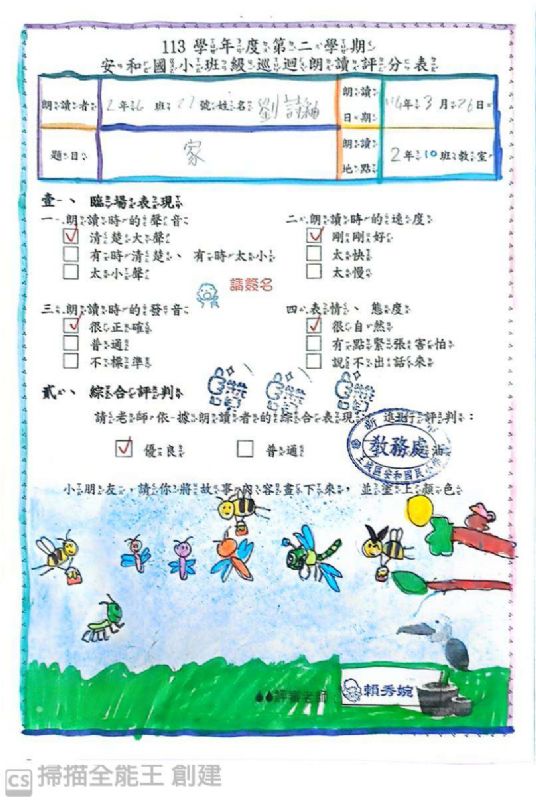 113學年度第二學期
安和國小班級巡迴朗讀評分表
朗讀者 2年6班 號姓名 劉詩
朗讀日期 114年3月26日
題目 家
朗讀地點 2年10班教室
壹、臨場表現
一、朗讀時的聲音
清楚大聲
有時清楚、有時太小
太小聲
二、朗讀時的速度
剛剛好
太快
太慢
請簽名
三、朗讀時的發音
很正確
普通
不標準
四、表情、態度
很自然
有點緊張害怕
說不出話來
貳、綜合評判
請老師依據朗讀者的綜合表現進行評判：
優良
普通
加油
教務處
小朋友，請你將故事內容畫下來，並塗上顏色
評審老師
賴秀婉
CS 掃描全能王 創建